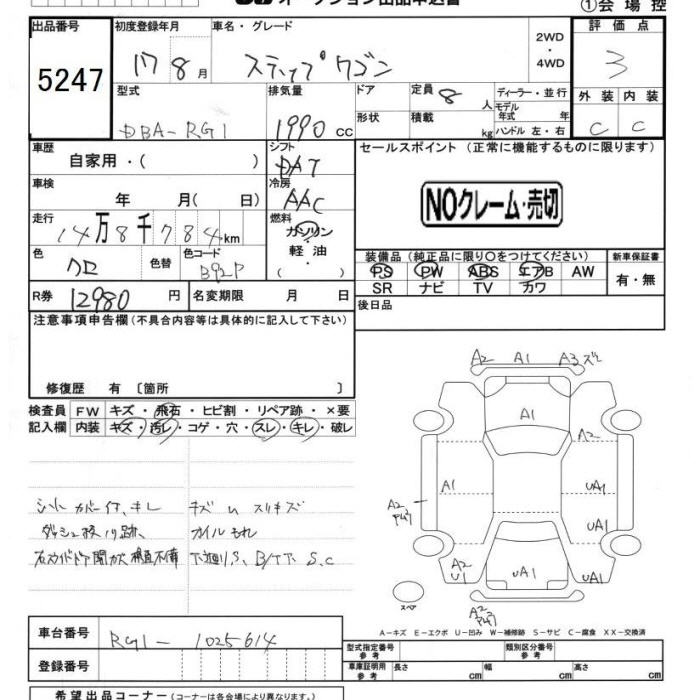 オークション出品申込書
①会場控
出品番号 初度登録年月 車名・グレード 2WD ・ 4WD 評価点
5247 17 8月 ステップワゴン 3
型式 排気量 ドア 定員 8 人 ディーラー・並行 外装 内装
DBA-RG1 1990 cc 形状 積載 kg モデル年式 年 ハンドル 左・右 C C
車歴 シフト セールスポイント (正常に機能するものに限ります)
自家用・( ) DAT
車検 冷房
年 月( 日) AAC NOクレーム・売切
走行 燃料
14万8千784km ガソリン
軽・油
( )
色 色替 色コード 装備品(純正品に限り○をつけてください) 新車保証書
クロ B92P PS PW ABS エアB AW 有・無
SR ナビ TV カワ
R券 12980 円 名変期限 月 日 後日品
注意事項申告欄(不具合内容等は具体的に記入して下さい)
修復歴 有 〔箇所 〕
検査員 FW キズ・飛石・ヒビ割・リペア跡・×要
記入欄 内装 キズ・汚レ・コゲ・穴・スレ・キレ・破レ
シートカバー付、キレ キズ ム スリキズ
ダッシュ 跡、 オイルもれ
下廻りS、 S.C
A2 A1 A3
A1
A2
A1 UA1
A2 UA1
A2 U1 UA1 UA1
スペア
A2
A-キズ E-エクボ U-凹み W-補修跡 S-サビ C-腐食 XX-交換済
車台番号 RG1-1025614
登録番号
型式指定番号 参考 類別区分番号 参考
車庫証明用 参考 長さ cm 幅 cm 高さ cm
希望出品コーナー(コーナーは各会場により異なります。)